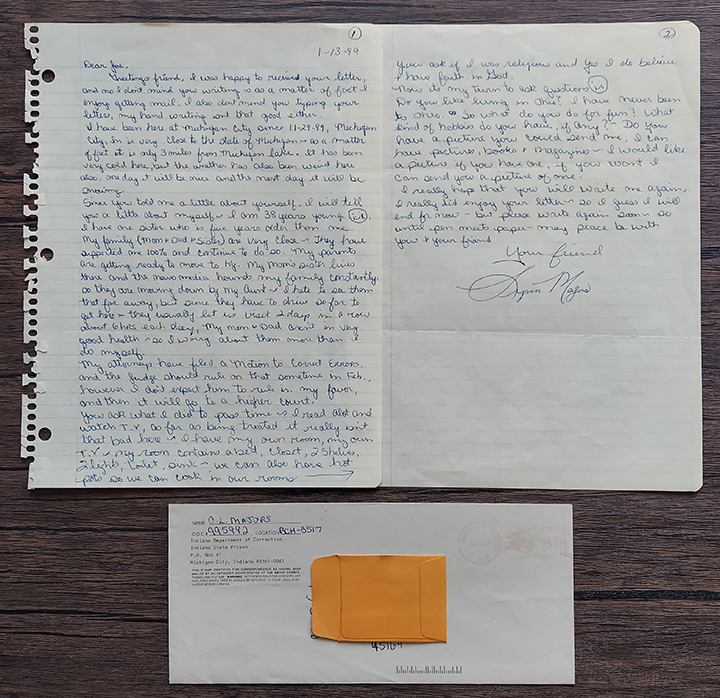 ①
1-13-99
Dear Joe,
Greetings friend, I was happy to received your letter,
and no I don't mind you writing is as a matter of fact I
enjoy getting mail. I also don't mind you typing your
letters, my hand writing isn't that good either.
I have been here at Michigan City since 11-29-99, Michigan
City, In is very close to the state of Michigan - as a matter
of fact it is only 3 miles from Michigan Lake. It has been
very cold here, but the weather has also been weird here
also, one day it will be nice and the next day it will be
snowing.
Since you told me a little about yourself, I will tell
you a little about myself - I am 38 years young
I have one sister who is five years older than me.
My family (Mom & Dad & Sister) are very close - They have
supported me 100% and continue to do so. My parents
are getting ready to move to Ky. My Mom's sister lives
there and the news media hounds my family constantly,
so they are moving down by my Aunt - I hate to see them
that far away, but since they have to drive so far to
get here - they usually let us visit 2 days in a row
about 6 hrs each day, My mom & Dad aren't in very
good health - so I worry about them more than I
do myself.
My attorneys have filed a Motion to Correct Errors,
and the judge should rule on that sometime in Feb.,
however I don't expect him to rule in my favor,
and then it will go to a higher court.
You ask what I did to pass time - I read alot and
watch T.V, as far as being treated it really isn't
that bad here - I have my own room, my own
T.V - my room contains a bed, closet, 2 shelves,
2 lights, toilet, sink - we can also have hot
pots so we can cook in our rooms
②
You ask if I was religious and yes I do believe
& have faith in God.
Now its my turn to ask questions
Do you like living in Ohio? I have never been
to Ohio. So what do you do for fun? What
kind of hobbies do you have, if any? Do you
have a picture you could send me, I can
have pictures, books & magazines - I would like
a picture if you have one - if you want I
can send you a picture of me.
I really hope that you will write me again,
I really did enjoy your letter - so I guess I will
end for now - but please write again soon - so
until pen meets paper - may peace be with
you & your friend
Your friend
Lynn Majors
NAME O. L. MAJORS
DOC# 995992 LOCATION BCH-B517
Indiana Department of Correction
Indiana State Prison
P.O. Box 41
Michigan City, Indiana 46361-0041
45169